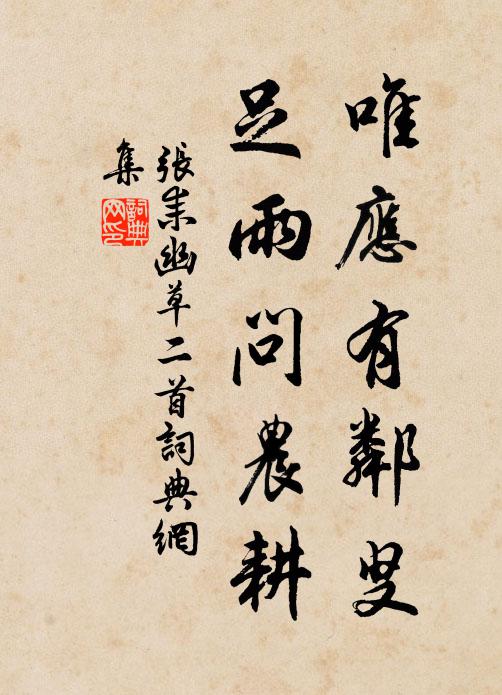 唯應有鄰叟
足雨問農耕
張耒幽草二首詞典網
集
詞典
网印